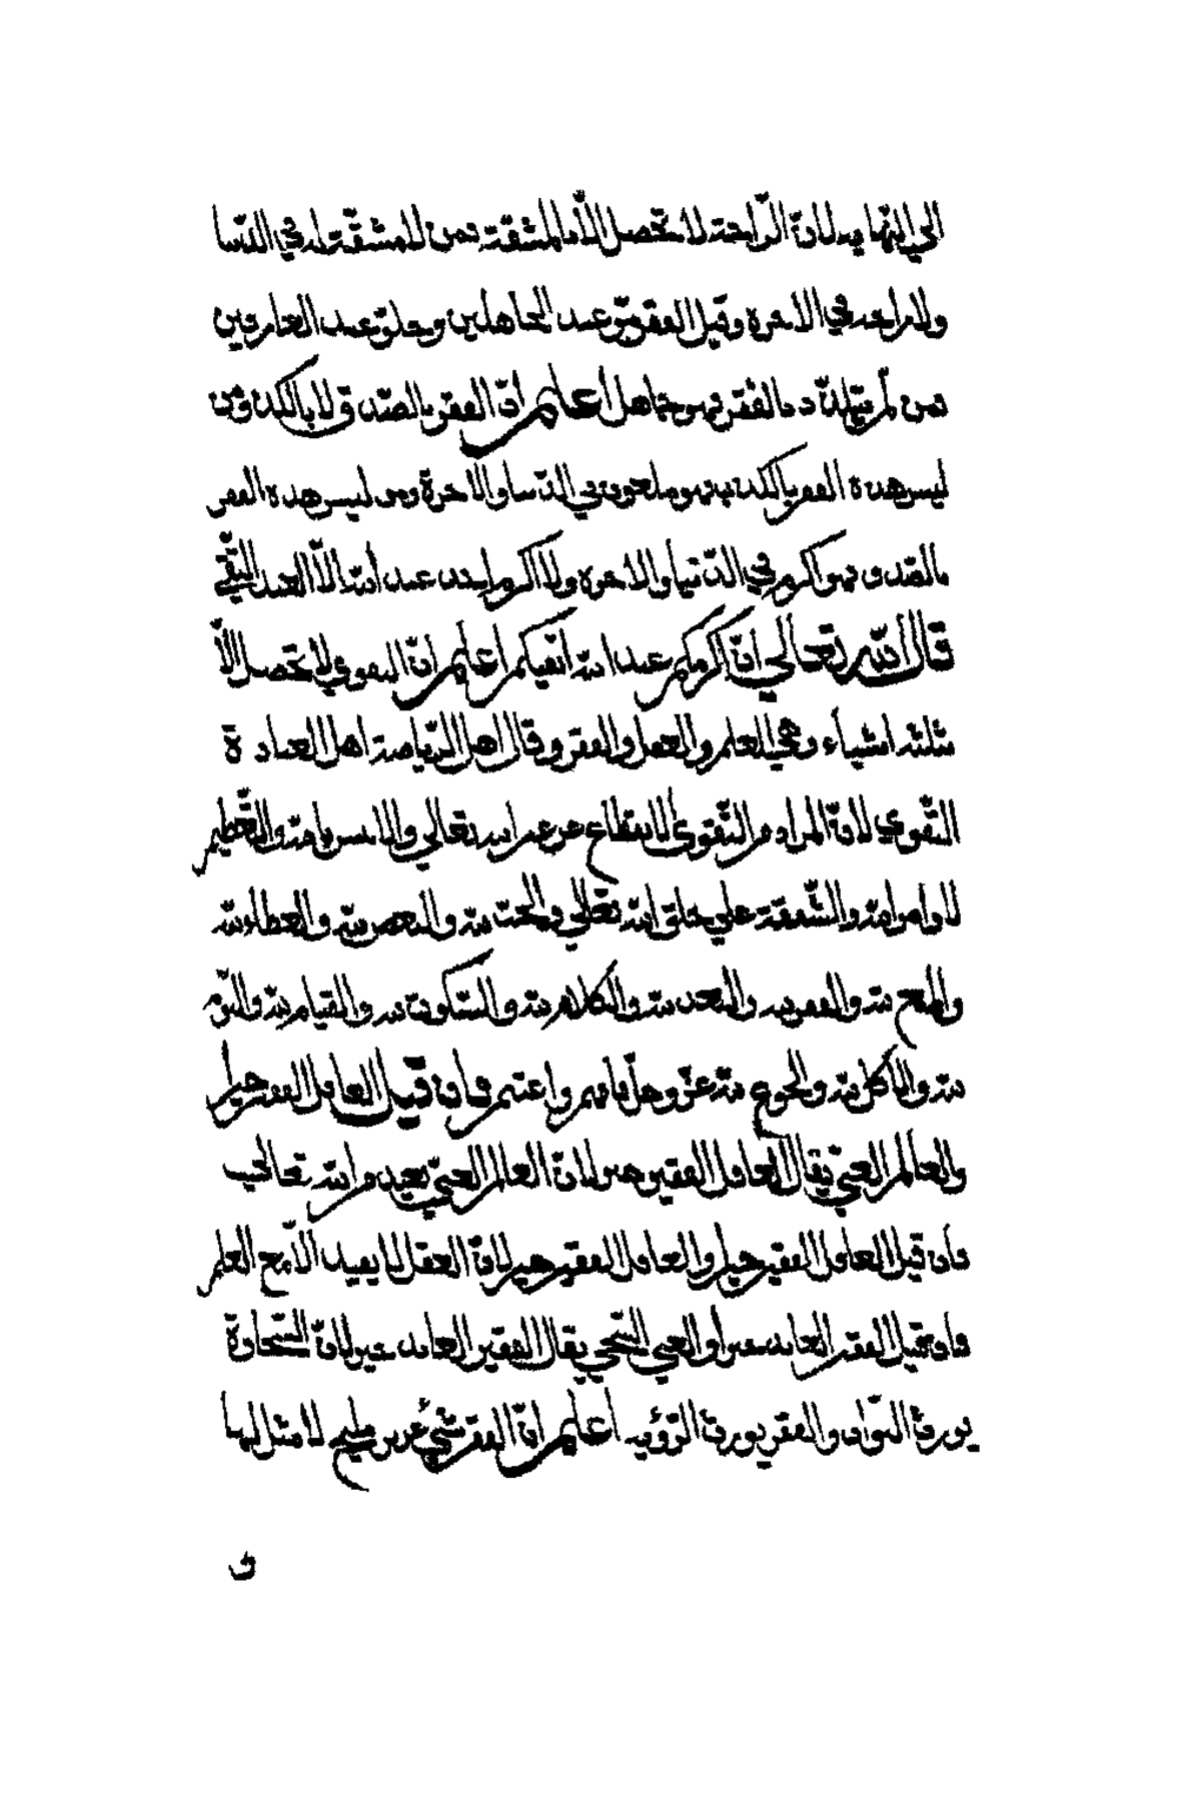 الي النهاية لان الراحة لا تحصل الا بالمشقة فمن لا مشقة له في الدنيا
ولا راحة في الاخرة وقيل الفقر مرّ عند الجاهلين وحلو عند العارفين
فمن لم هذا الفقر فهو جاهل اعلم انّ الفقر بالصّدق لا بالكذب وٮں
ليس هذه الفقر بالكذب فهو ملعون في الدّنيا والاخرة ومن ليس هذه الفقر
بالصّدق فهو اكرم في الدّنيا والاخرة ولا اكرم عند الله الاّ العبد التّقي
قال الله تعالي انّ اكرمكم عند الله اتقيكم اعلم انّ التقوي لا تحصل الاّ
بثلثة اشياء وهي العلم والعمل والفقر وقال اهل الرّياضة اهل العبادة
التّقوي لانّ المراد من التّقوي الانقطاع عن غير الله تعالي والانس بامره والتّعظيم
لاوامره والشّفقة علي خلق الله تعالي والحبّ منه والبغض منه والعطاء منه
والمنع منه والقرب منه والبعد منه والكلام منه والسّكوت منه والقيام منه والنّوم
منه والاكل منه والجوع منه عزّ وجلّ فافهم واغتنم فان قيل العاقل الفقير خير ام
والعالم الغنيّ فقال العاقل الفقير خير لانّ العالم الغنيّ بعيد من الله تعالي
فان قيل العاقل الفقير خير او العاقل الفقير خير لانّ العقل لا يفيد الاّ مع العلم
فان قيل الفقير العابد خير او الغني السّخي فقال الفقير العابد خير لانّ السّخاوة
يورث الثّواب والفقر يورث الرّؤية اعلم انّ الفقر شيء عزيز مليح لا مثل لها